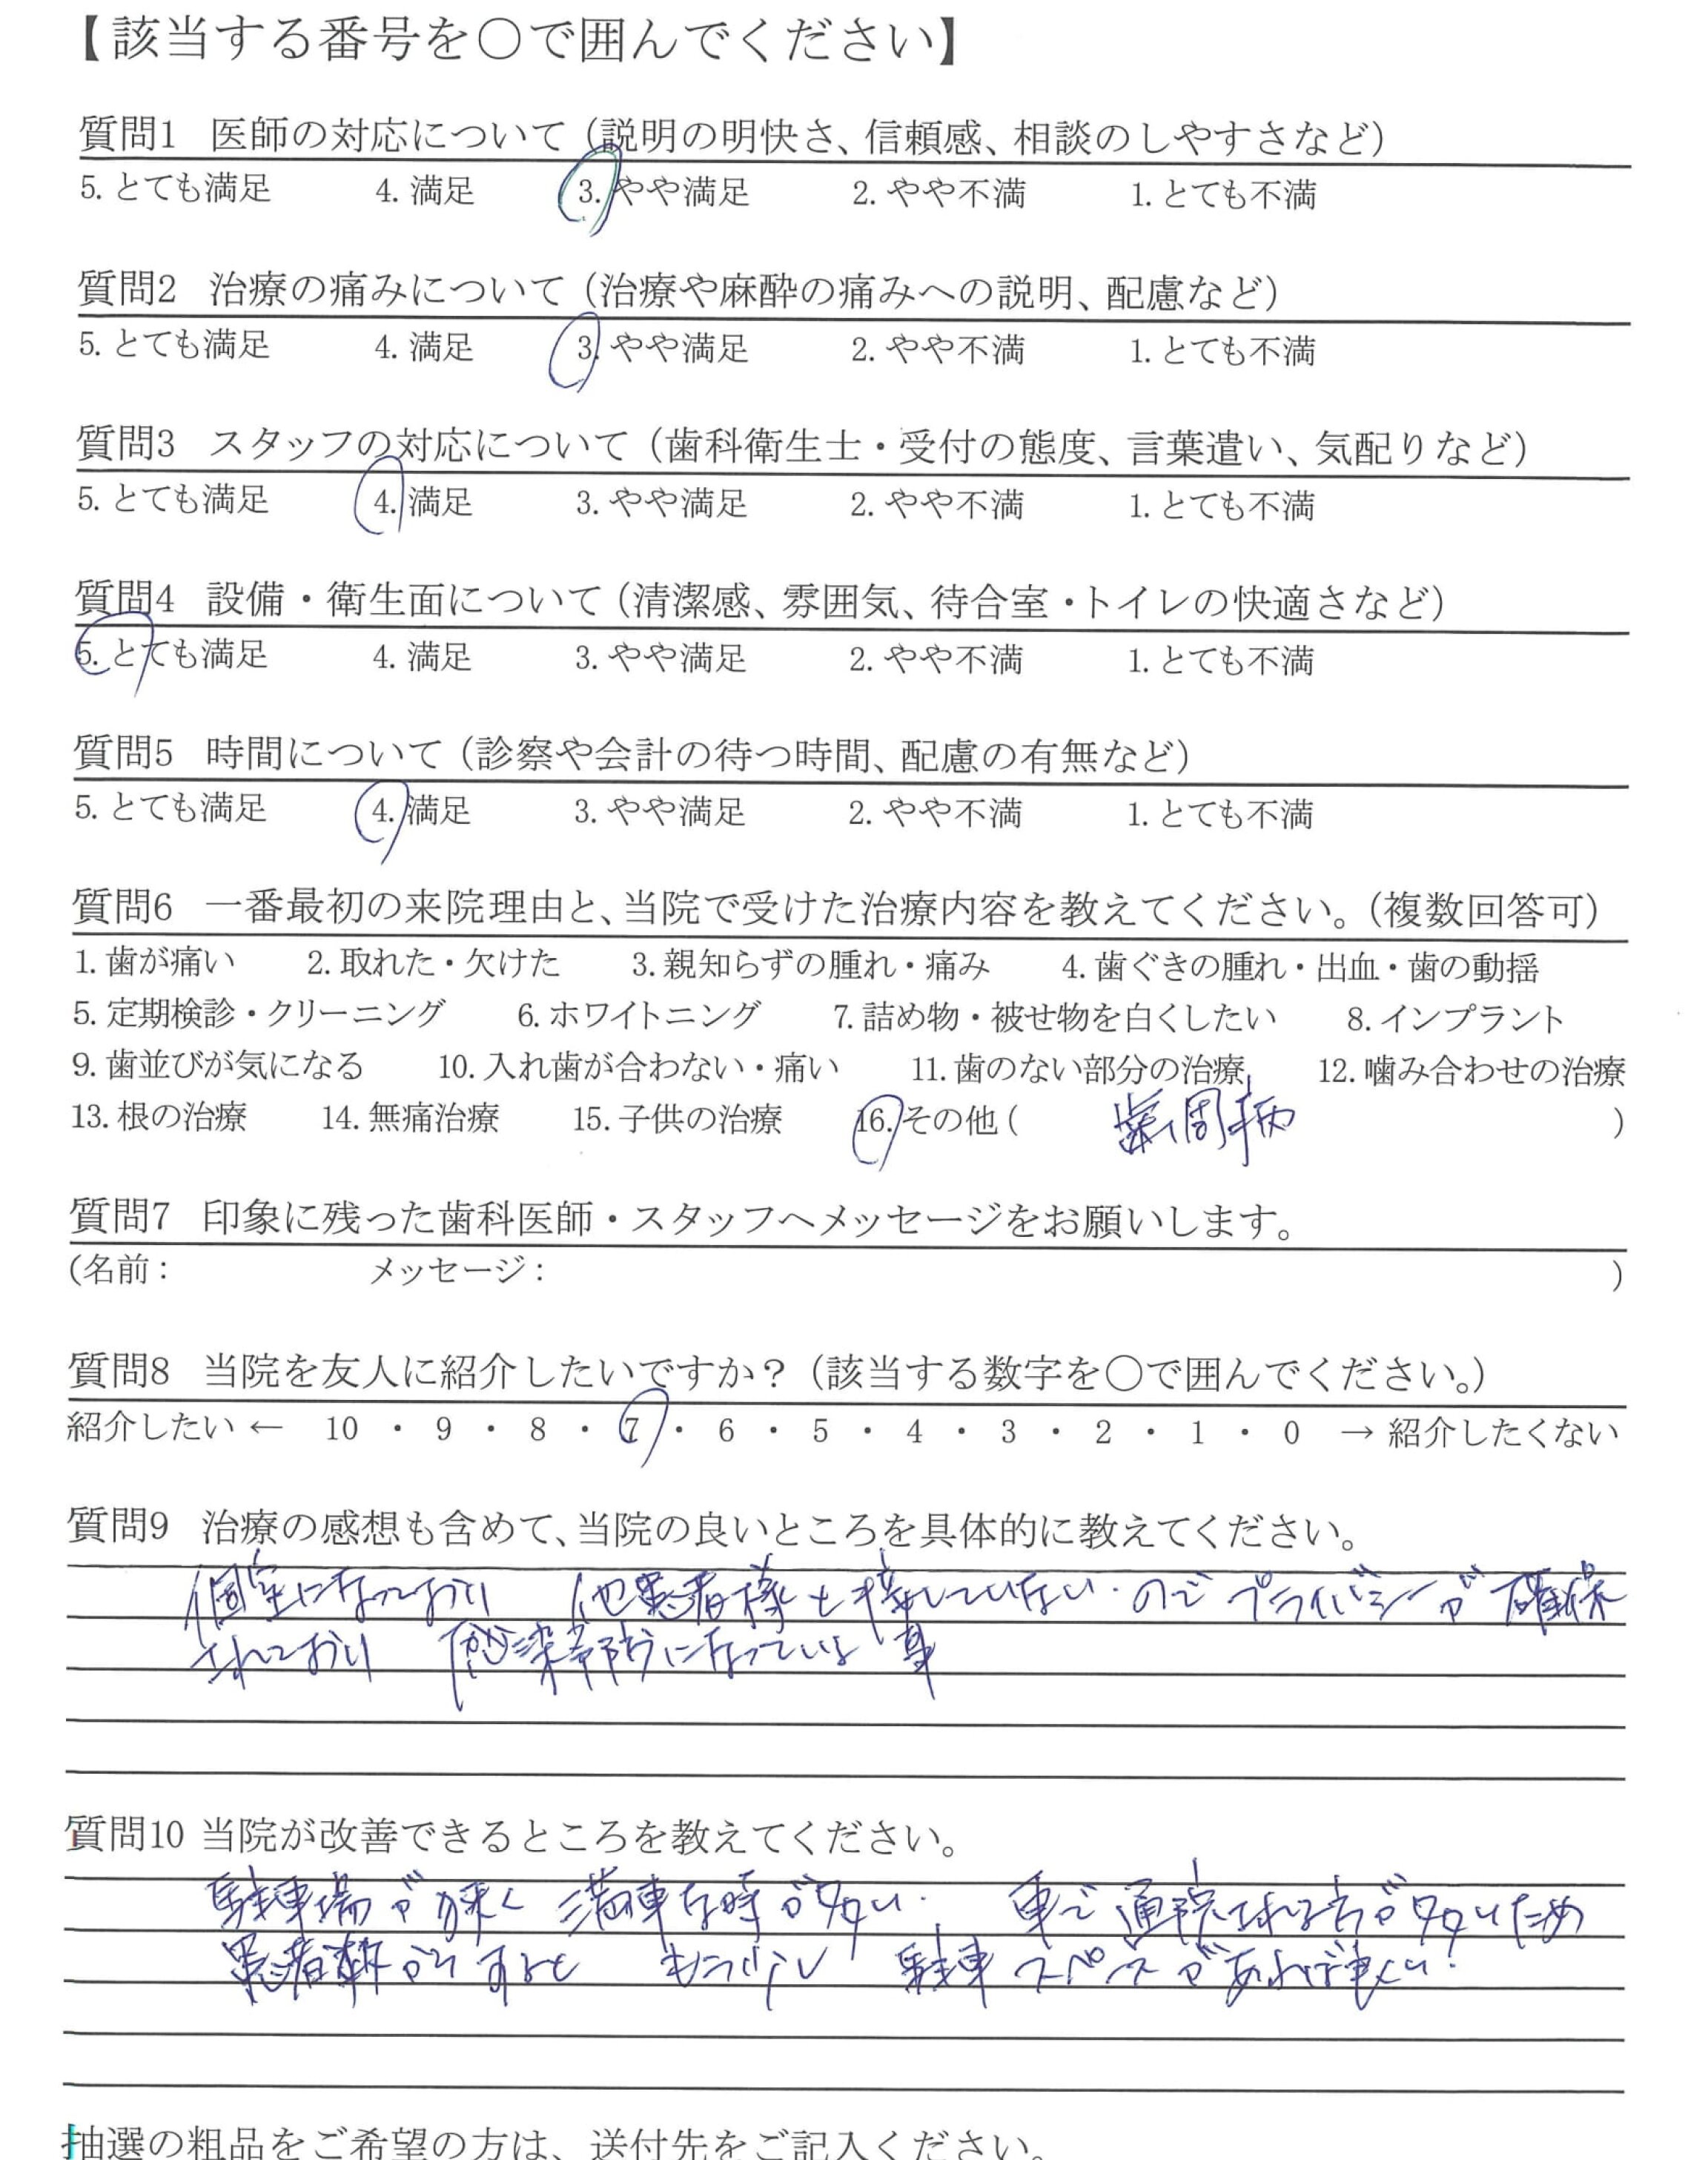 【該当する番号を〇で囲んでください】
質問1 医師の対応について（説明の明快さ、信頼感、相談のしやすさなど）
5. とても満足 4. 満足 3. やや満足 2. やや不満 1. とても不満
質問2 治療の痛みについて（治療や麻酔の痛みへの説明、配慮など）
5. とても満足 4. 満足 3. やや満足 2. やや不満 1. とても不満
質問3 スタッフの対応について（歯科衛生士・受付の態度、言葉遣い、気配りなど）
5. とても満足 4. 満足 3. やや満足 2. やや不満 1. とても不満
質問4 設備・衛生面について（清潔感、雰囲気、待合室・トイレの快適さなど）
5. とても満足 4. 満足 3. やや満足 2. やや不満 1. とても不満
質問5 時間について（診察や会計の待つ時間、配慮の有無など）
5. とても満足 4. 満足 3. やや満足 2. やや不満 1. とても不満
質問6 一番最初の来院理由と、当院で受けた治療内容を教えてください。（複数回答可）
1. 歯が痛い 2. 取れた・欠けた 3. 親知らずの腫れ・痛み 4. 歯ぐきの腫れ・出血・歯の動揺
5. 定期検診・クリーニング 6. ホワイトニング 7. 詰め物・被せ物を白くしたい 8. インプラント
9. 歯並びが気になる 10. 入れ歯が合わない・痛い 11. 歯のない部分の治療 12. 噛み合わせの治療
13. 根の治療 14. 無痛治療 15. 子供の治療 16. その他（ 歯周病 ）
質問7 印象に残った歯科医師・スタッフへメッセージをお願いします。
（名前： メッセージ： ）
質問8 当院を友人に紹介したいですか？（該当する数字を〇で囲んでください。）
紹介したい ← 10 ・ 9 ・ 8 ・ 7 ・ 6 ・ 5 ・ 4 ・ 3 ・ 2 ・ 1 ・ 0 → 紹介したくない
質問9 治療の感想も含めて、当院の良いところを具体的に教えてください。
個室になっており 他患者様と接していない．のでプライバシーが確保
されており 感染予防になっている事
質問10 当院が改善できるところを教えてください。
駐車場が狭く 満車な時が多い． 車で通院される方が多いため
患者 もう少し 駐車スペースがあれば
抽選の粗品をご希望の方は、送付先をご記入ください。